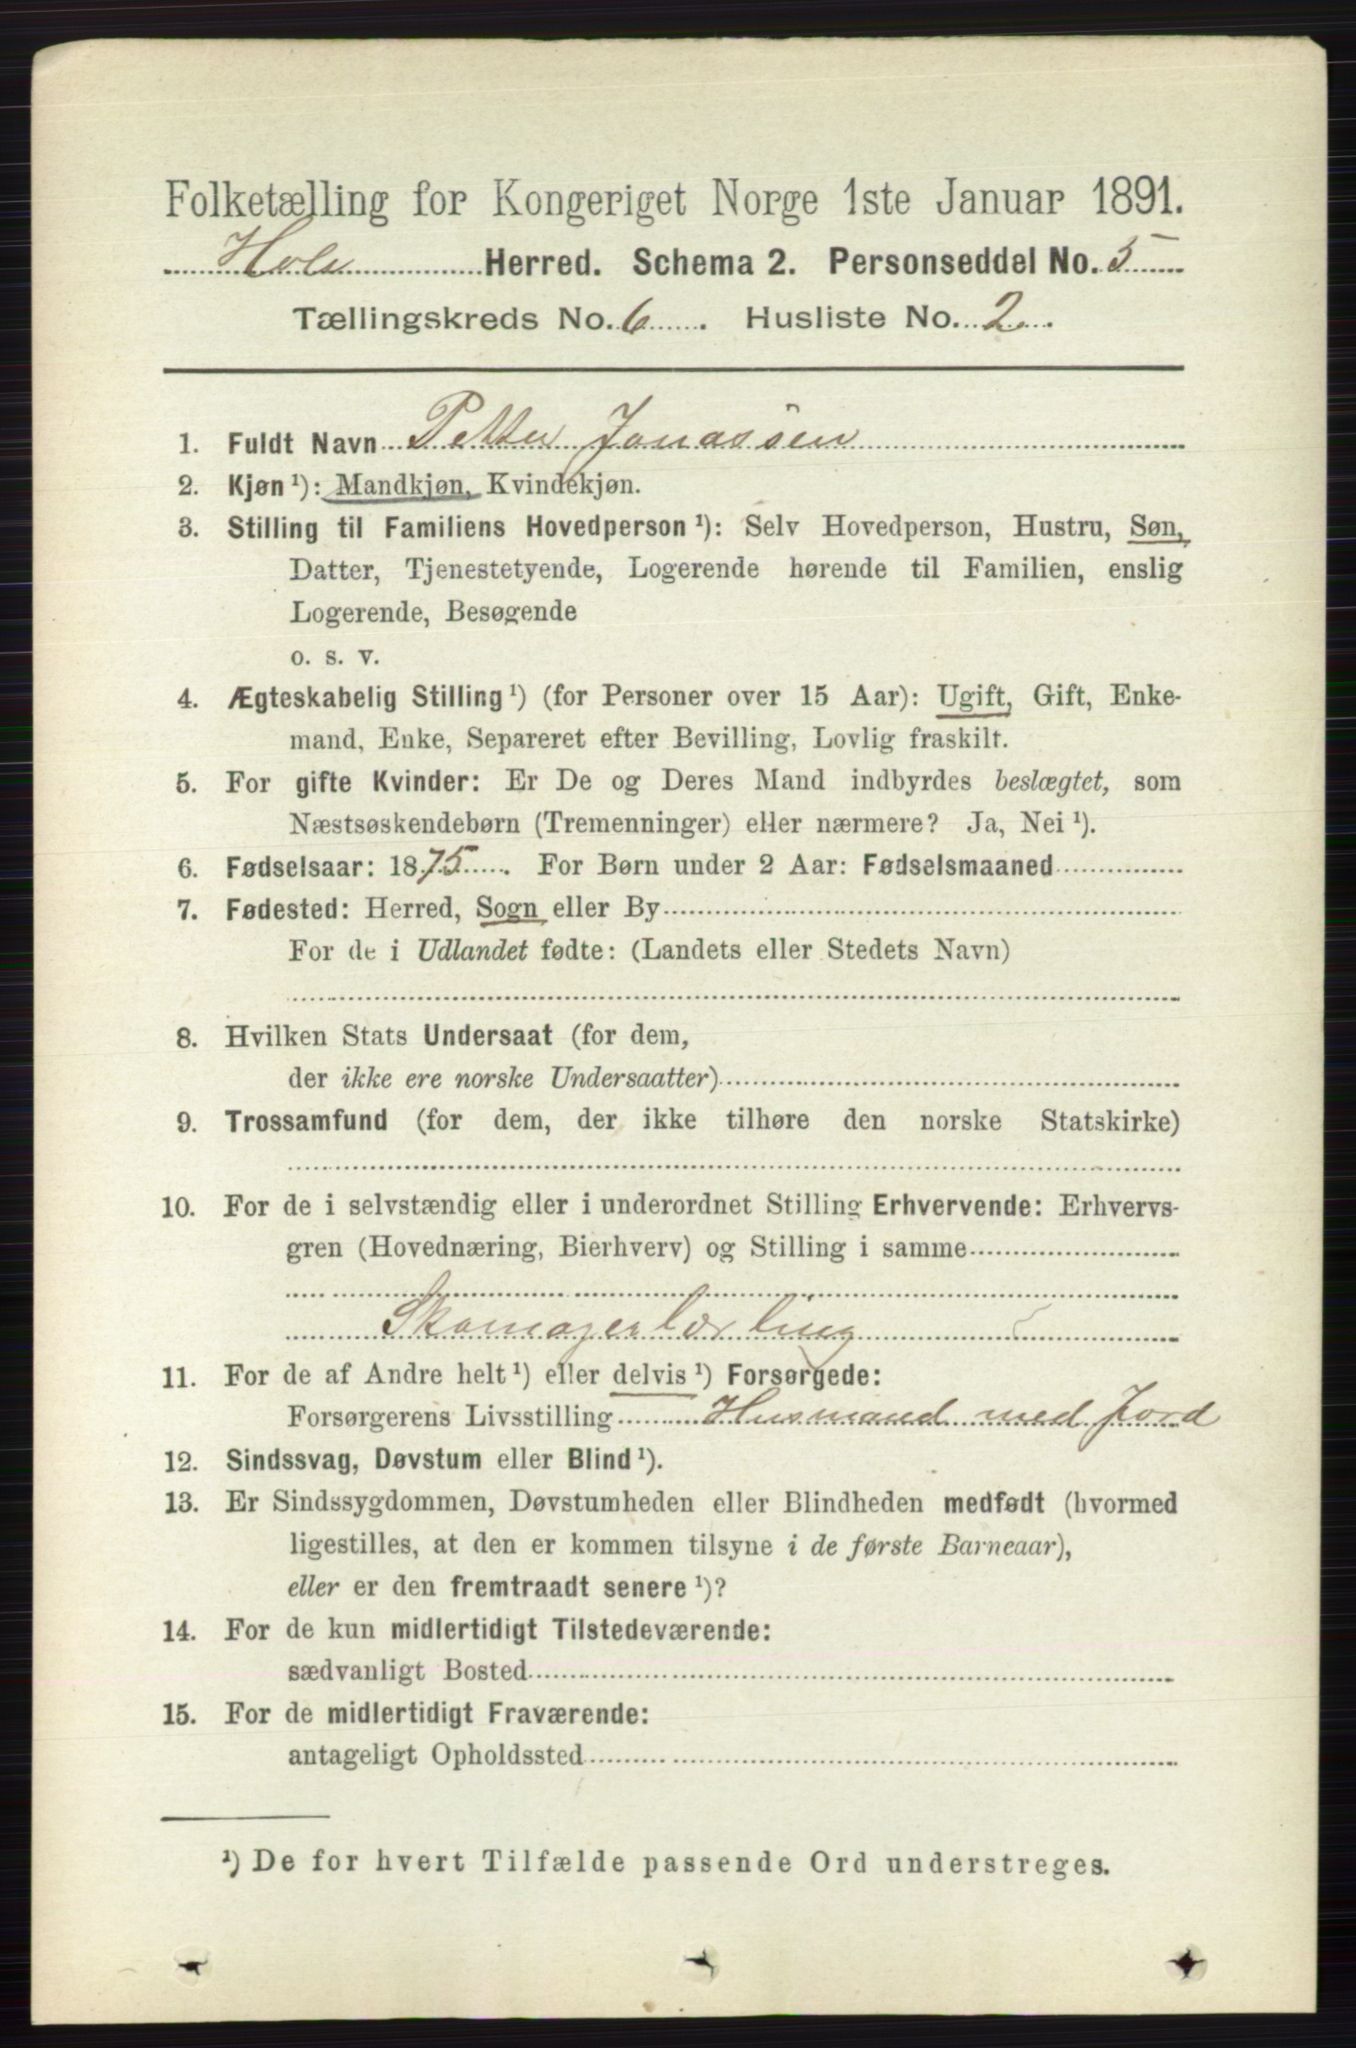 Folketælling for Kongeriget Norge 1ste Januar 1891.
Hole Herred. Schema 2. Personseddel No. 5
Tællingskreds No. 6. Husliste No. 2.
1. Fuldt Navn Petter Jonassen
2. Kjøn ¹): Mandkjøn, Kvindekjøn.
3. Stilling til Familiens Hovedperson ¹): Selv Hovedperson, Hustru, Søn,
Datter, Tjenestetyende, Logerende hørende til Familien, enslig
Logerende, Besøgende
o. s. v.
4. Ægteskabelig Stilling ¹) (for Personer over 15 Aar): Ugift, Gift, Enke-
mand, Enke, Separeret efter Bevilling, Lovlig fraskilt.
5. For gifte Kvinder: Er De og Deres Mand indbyrdes beslægtet, som
Næstsøskendebørn (Tremenninger) eller nærmere? Ja, Nei ¹).
6. Fødselsaar: 1875. For Børn under 2 Aar: Fødselsmaaned
7. Fødested: Herred, Sogn eller By
For de i Udlandet fødte: (Landets eller Stedets Navn)
8. Hvilken Stats Undersaat (for dem,
der ikke ere norske Undersaatter)
9. Trossamfund (for dem, der ikke tilhøre den norske Statskirke)
10. For de i selvstændig eller i underordnet Stilling Erhvervende: Erhvervs-
gren (Hovednæring, Bierhverv) og Stilling i samme
Skomagerlærling
11. For de af Andre helt ¹) eller delvis ¹) Forsørgede:
Forsørgerens Livsstilling Husmand med Jord
12. Sindssvag, Døvstum eller Blind ¹).
13. Er Sindssygdommen, Døvstumheden eller Blindheden medfødt (hvormed
ligestilles, at den er kommen tilsyne i de første Barneaar),
eller er den fremtraadt senere ¹)?
14. For de kun midlertidigt Tilstedeværende:
sædvanligt Bosted
15. For de midlertidigt Fraværende:
antageligt Opholdssted
¹) De for hvert Tilfælde passende Ord understreges.